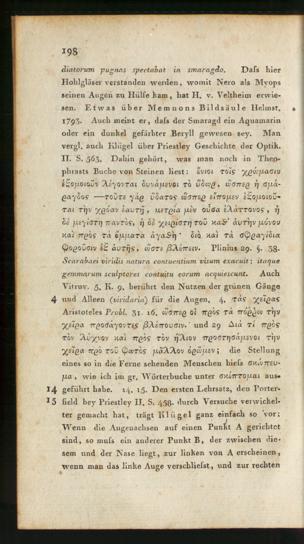 198
diatorum pugnas spectabat in smaragdo. Dafs hier
Hohlgläser verstanden werden, womit Nero als Myops
seinen Augen zu Hülfe kam, hat H. v. Veltheim erwie-
sen. Etwas über Memnons Bildsäule Helmst.
1793. Auch meint er, dafs der Smaragd ein Aquamarin
oder ein dunkel gefärbter Beryll gewesen sey. Man
vergl. auch Klügel über Priestley Geschichte der Optik.
II. S. 563. Dahin gehört, was man noch in Theo-
phrasts Buche von Steinen liest: ἔνιοι τοῖς χρώμασιν
ἐξομοιοῦν λέγονται δυνάμενοι τὸ ὕδωρ, ὥσπερ ἡ σμά-
ραγδος —τοῦτε γὰρ ὕδατος ὥσπερ εἴπομεν ἐξομοιοῦ-
ται τὴν χρόαν ἑαυτῇ, μετρία μὲν οὖσα ἐλάττονος, ἡ
δὲ μεγίστη παντὸς, ἡ δὲ χειρίστη τοῦ καθ᾽ αὑτὴν μόνον
καὶ πρὸς τὰ ὄμματα ἀγαθή· διὸ καὶ τὰ σφραγίδια
φοροῦσιν ἐξ αὐτῆς, ὥστε βλέπειν. Plinius 29. §. 38.
Scarabaei viridis natura contuentium visum exacuit: itaque
gemmarum sculptores contuitu eorum acquiescunt. Auch
Vitruv. 5. K. 9. berührt den Nutzen der grünen Gänge
4 und Alleen (viridaria) für die Augen. 4. τὰς χεῖρας
Aristoteles Probl. 31. 16. ὥσπερ οἱ πρὸς τὰ πόῤῥω τὴν
χεῖρα προσάγοντες βλέπουσιν. und 29 Διὰ τί πρὸς
τὸν λύχνον καὶ πρὸς τὸν ἥλιον προστησάμενοι τὴν
χεῖρα πρὸ τοῦ φωτὸς μᾶλλον ὁρῶμεν; die Stellung
eines so in die Ferne sehenden Menschen hiefs σκώπευ-
μα, wie ich im gr. Wörterbuche unter σκίπτομαι aus-
14 geführt habe. 14. 15. Den ersten Lehrsatz, den Porter-
15 field bey Priestley II. S. 498. durch Versuche verwickel-
ter gemacht hat, trägt Klügel ganz einfach so vor:
Wenn die Augenachsen auf einen Punkt A gerichtet
sind, so mufs ein anderer Punkt B, der zwischen die-
sem und der Nase liegt, zur linken von A erscheinen,
wenn man das linke Auge verschliefst, und zur rechten